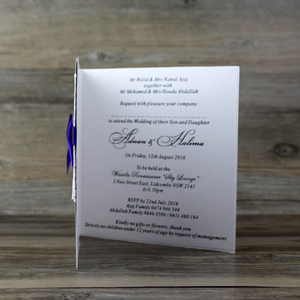 Mr Walid & Mrs Nawal Ajaj
together with
Mr Mohamed & Mrs Houda Abdallah
Request with pleasure your company
to attend the Wedding of their Son and Daughter
Adnan & Halima
On Friday, 12th August 2016
Will be held at the
Westella Renaissance "Sky Lounge"
5 New Street East, Lidcombe NSW 2141
At 6.30pm
RSVP by 22nd July 2016
Ajaj Family 0474 846 344
Abdallah Family
Kindly no gifts or flowers, thank you
Strictly no children under 12 years of age by request of management